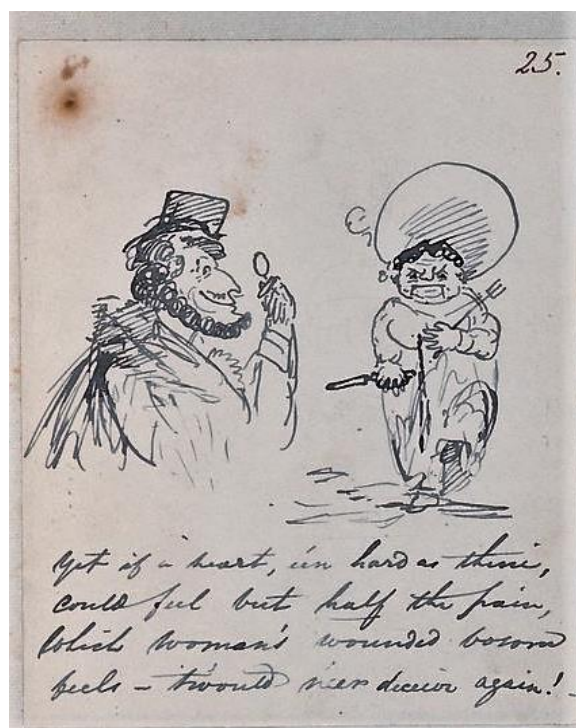 25.
Yet if a heart, e'en hard as thine,
could feel but half the pain,
Which woman's wounded bosom
feels – t'would ne'er deceive again!